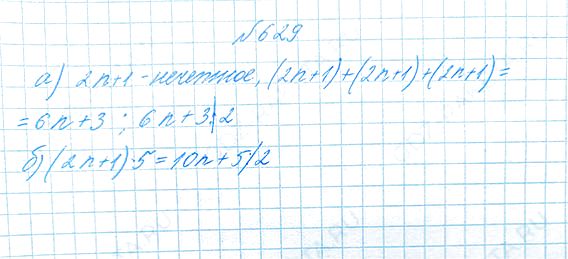 №629
а) 2n+1 - нечетное, (2n+1)+(2n+1)+(2n+1)=
=6n+3 ; 6n+3⋮̸2
б) (2n+1)·5=10n+5/2